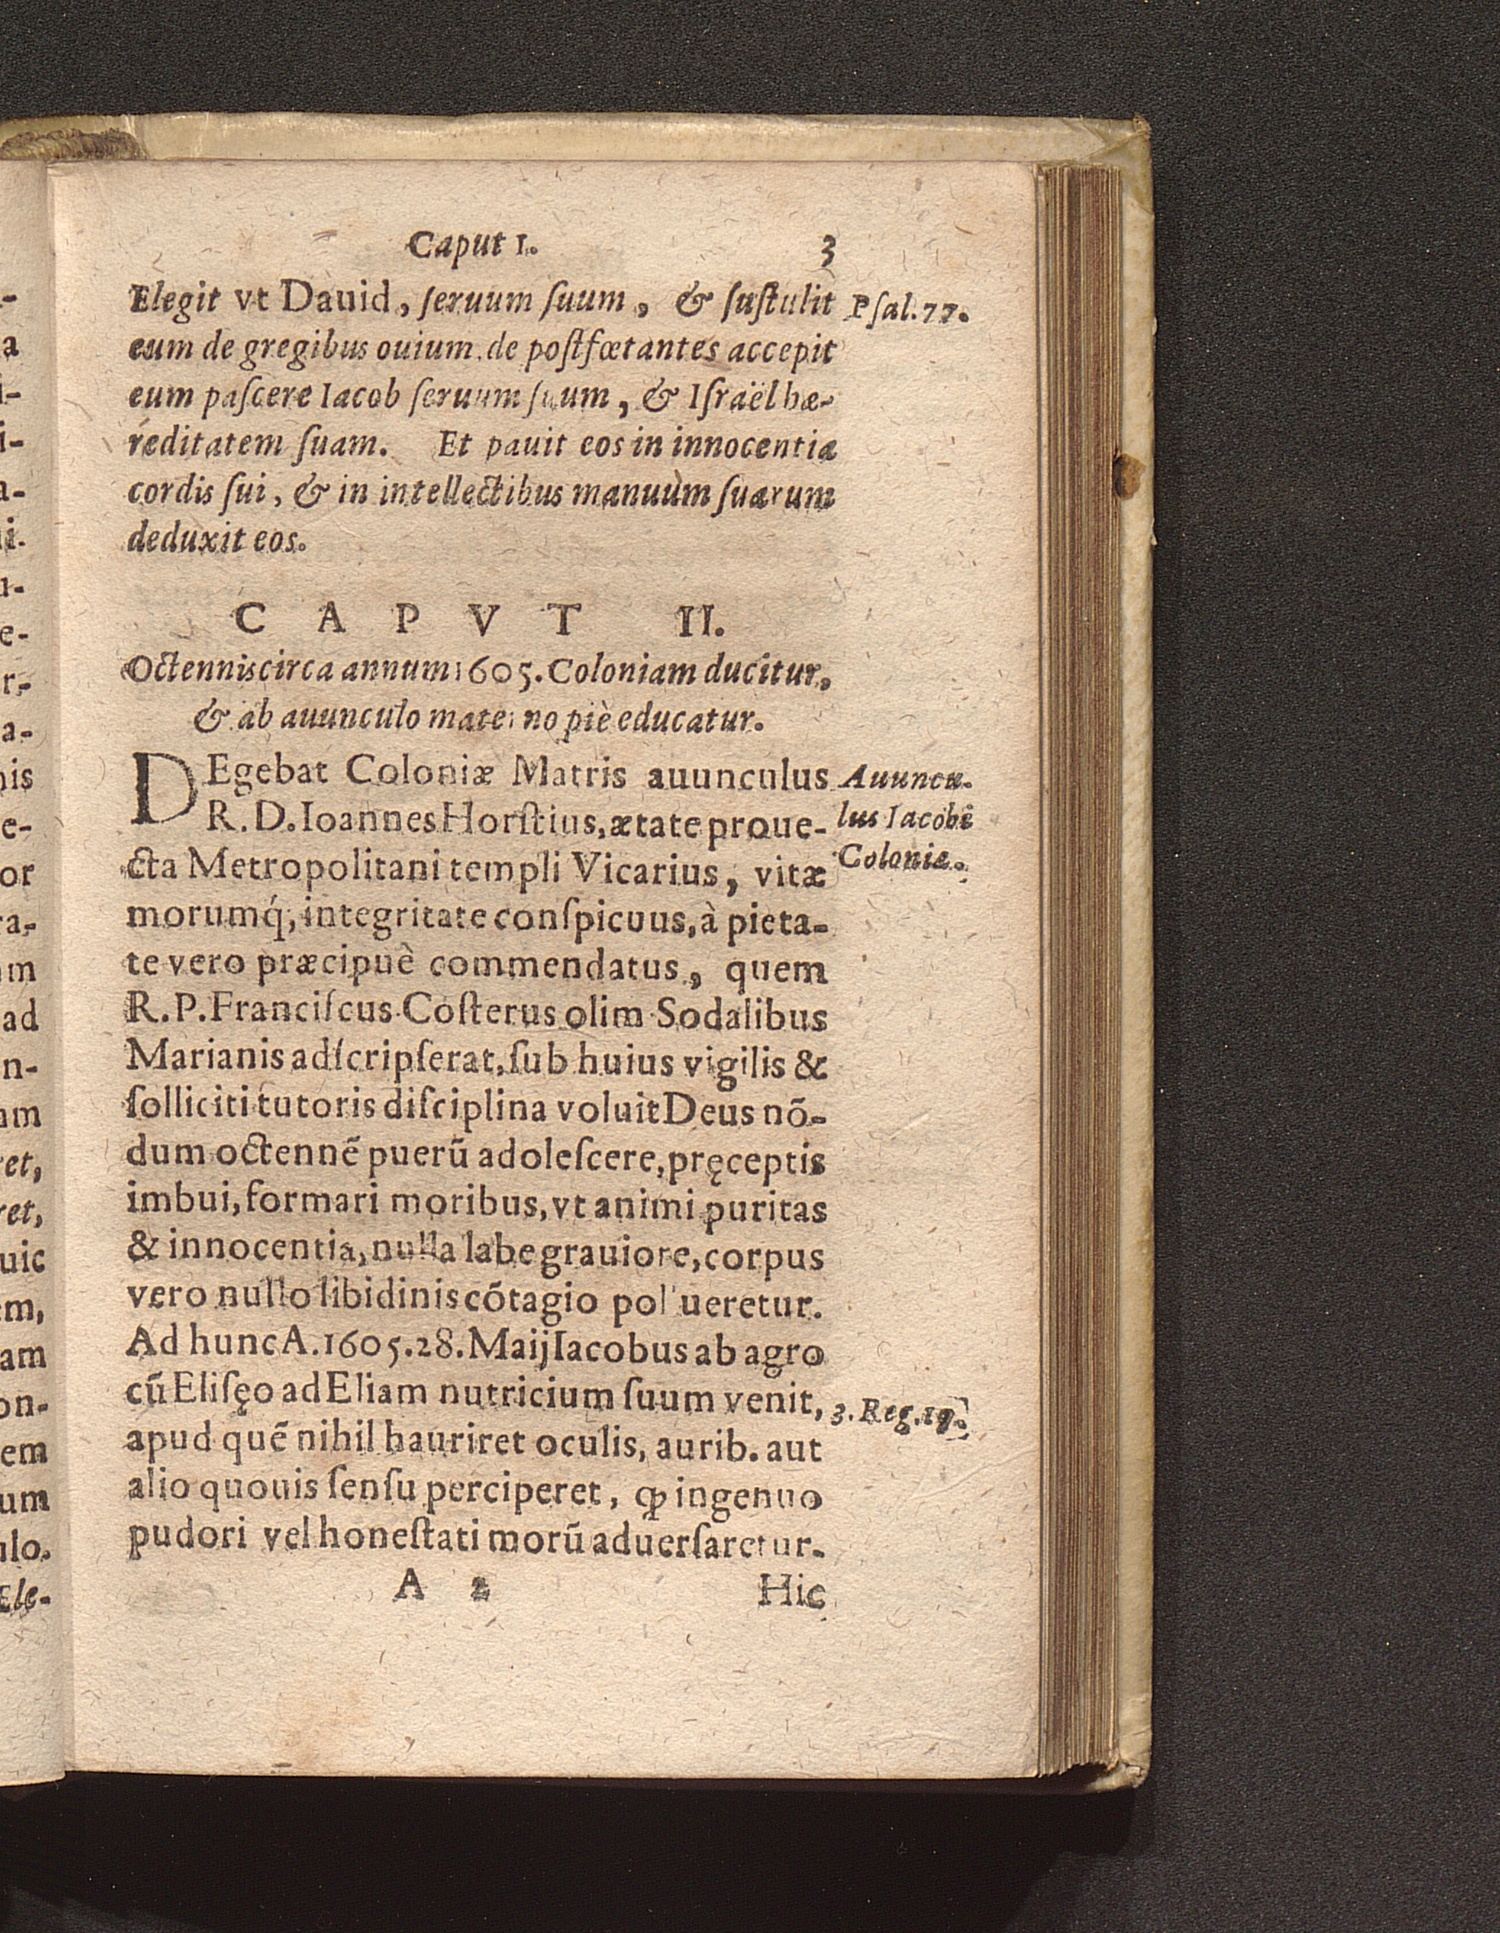 Caput 1. 3
Elegit vt Dauid, ſeruum ſuum, & ſuſtulit
Pſal. 77.
eum de gregibus ouium, de poſtfœtantes accepit
eum paſcere Iacob ſeruum ſuum, & Iſraël hæ-
reditatem ſuam. Et pauit eos in innocentia
cordis ſui, & in intellectibus manuùm ſuarum
deduxit eos.
CAPVT II.
Octennis circa annum 1605. Coloniam ducitur,
& ab auunculo materno piè educatur.
DEgebat Coloniæ Matris auunculus
R. D. Ioannes Horſtius, ætate proue-
cta Metropolitani templi Vicarius, vitæ
morumq́; integritate conſpicuus, à pieta-
te vero præcipuè commendatus, quem
R. P. Franciſcus Coſterus olim Sodalibus
Marianis adſcripſerat, ſub huius vigilis &
ſolliciti tutoris diſciplina voluit Deus nō-
dum octennē puerū adoleſcere, pręceptis
imbui, formari moribus, vt animi puritas
& innocentia, nulla labe grauiore, corpus
vero nullo libidinis cōtagio pollueretur.
Ad hunc A. 1605. 28. Maij Iacobus ab agro
cū Eliſęo ad Eliam nutricium ſuum venit,
apud quē nihil hauriret oculis, aurib. aut
alio quouis ſenſu perciperet, ꝙ ingenuo
pudori vel honeſtati morū aduerſaretur.
Auuncu-
lus Iacobi
Coloniæ.
3. Reg. 19.
A 2 Hic